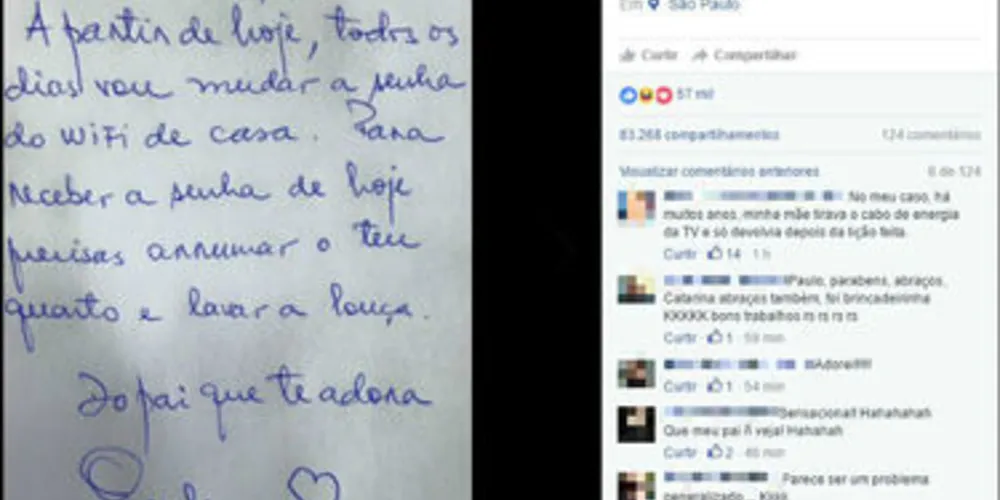 A partir de hoje, todos os
dias vou mudar a senha
do WiFi de casa. Para
receber a senha de hoje
precisas arrumar o teu
quarto e lavar a louça.
Do pai que te adora
Em São Paulo
Curtir Compartilhar
57 mil
83.268 compartilhamentos 124 comentários
Visualizar comentários anteriores 6 de 124
No meu caso, há
muitos anos, minha mãe tirava o cabo de energia
da TV e só devolvia depois da lição feita.
Curtir · 14 · 1 h
Paulo, parabens, abraços,
Catarina abraços também, foi brincadeirinha
KKKKK bons trabalhos rs rs rs rs
Curtir · 1 · 59 min
Adorei!!!!!
Curtir · 1 · 54 min
Sensacional! Hahahahah
Que meu pai ñ veja! Hahahah
Curtir · 2 · 46 min
Parece ser um problema
generalizado.... Kkkk